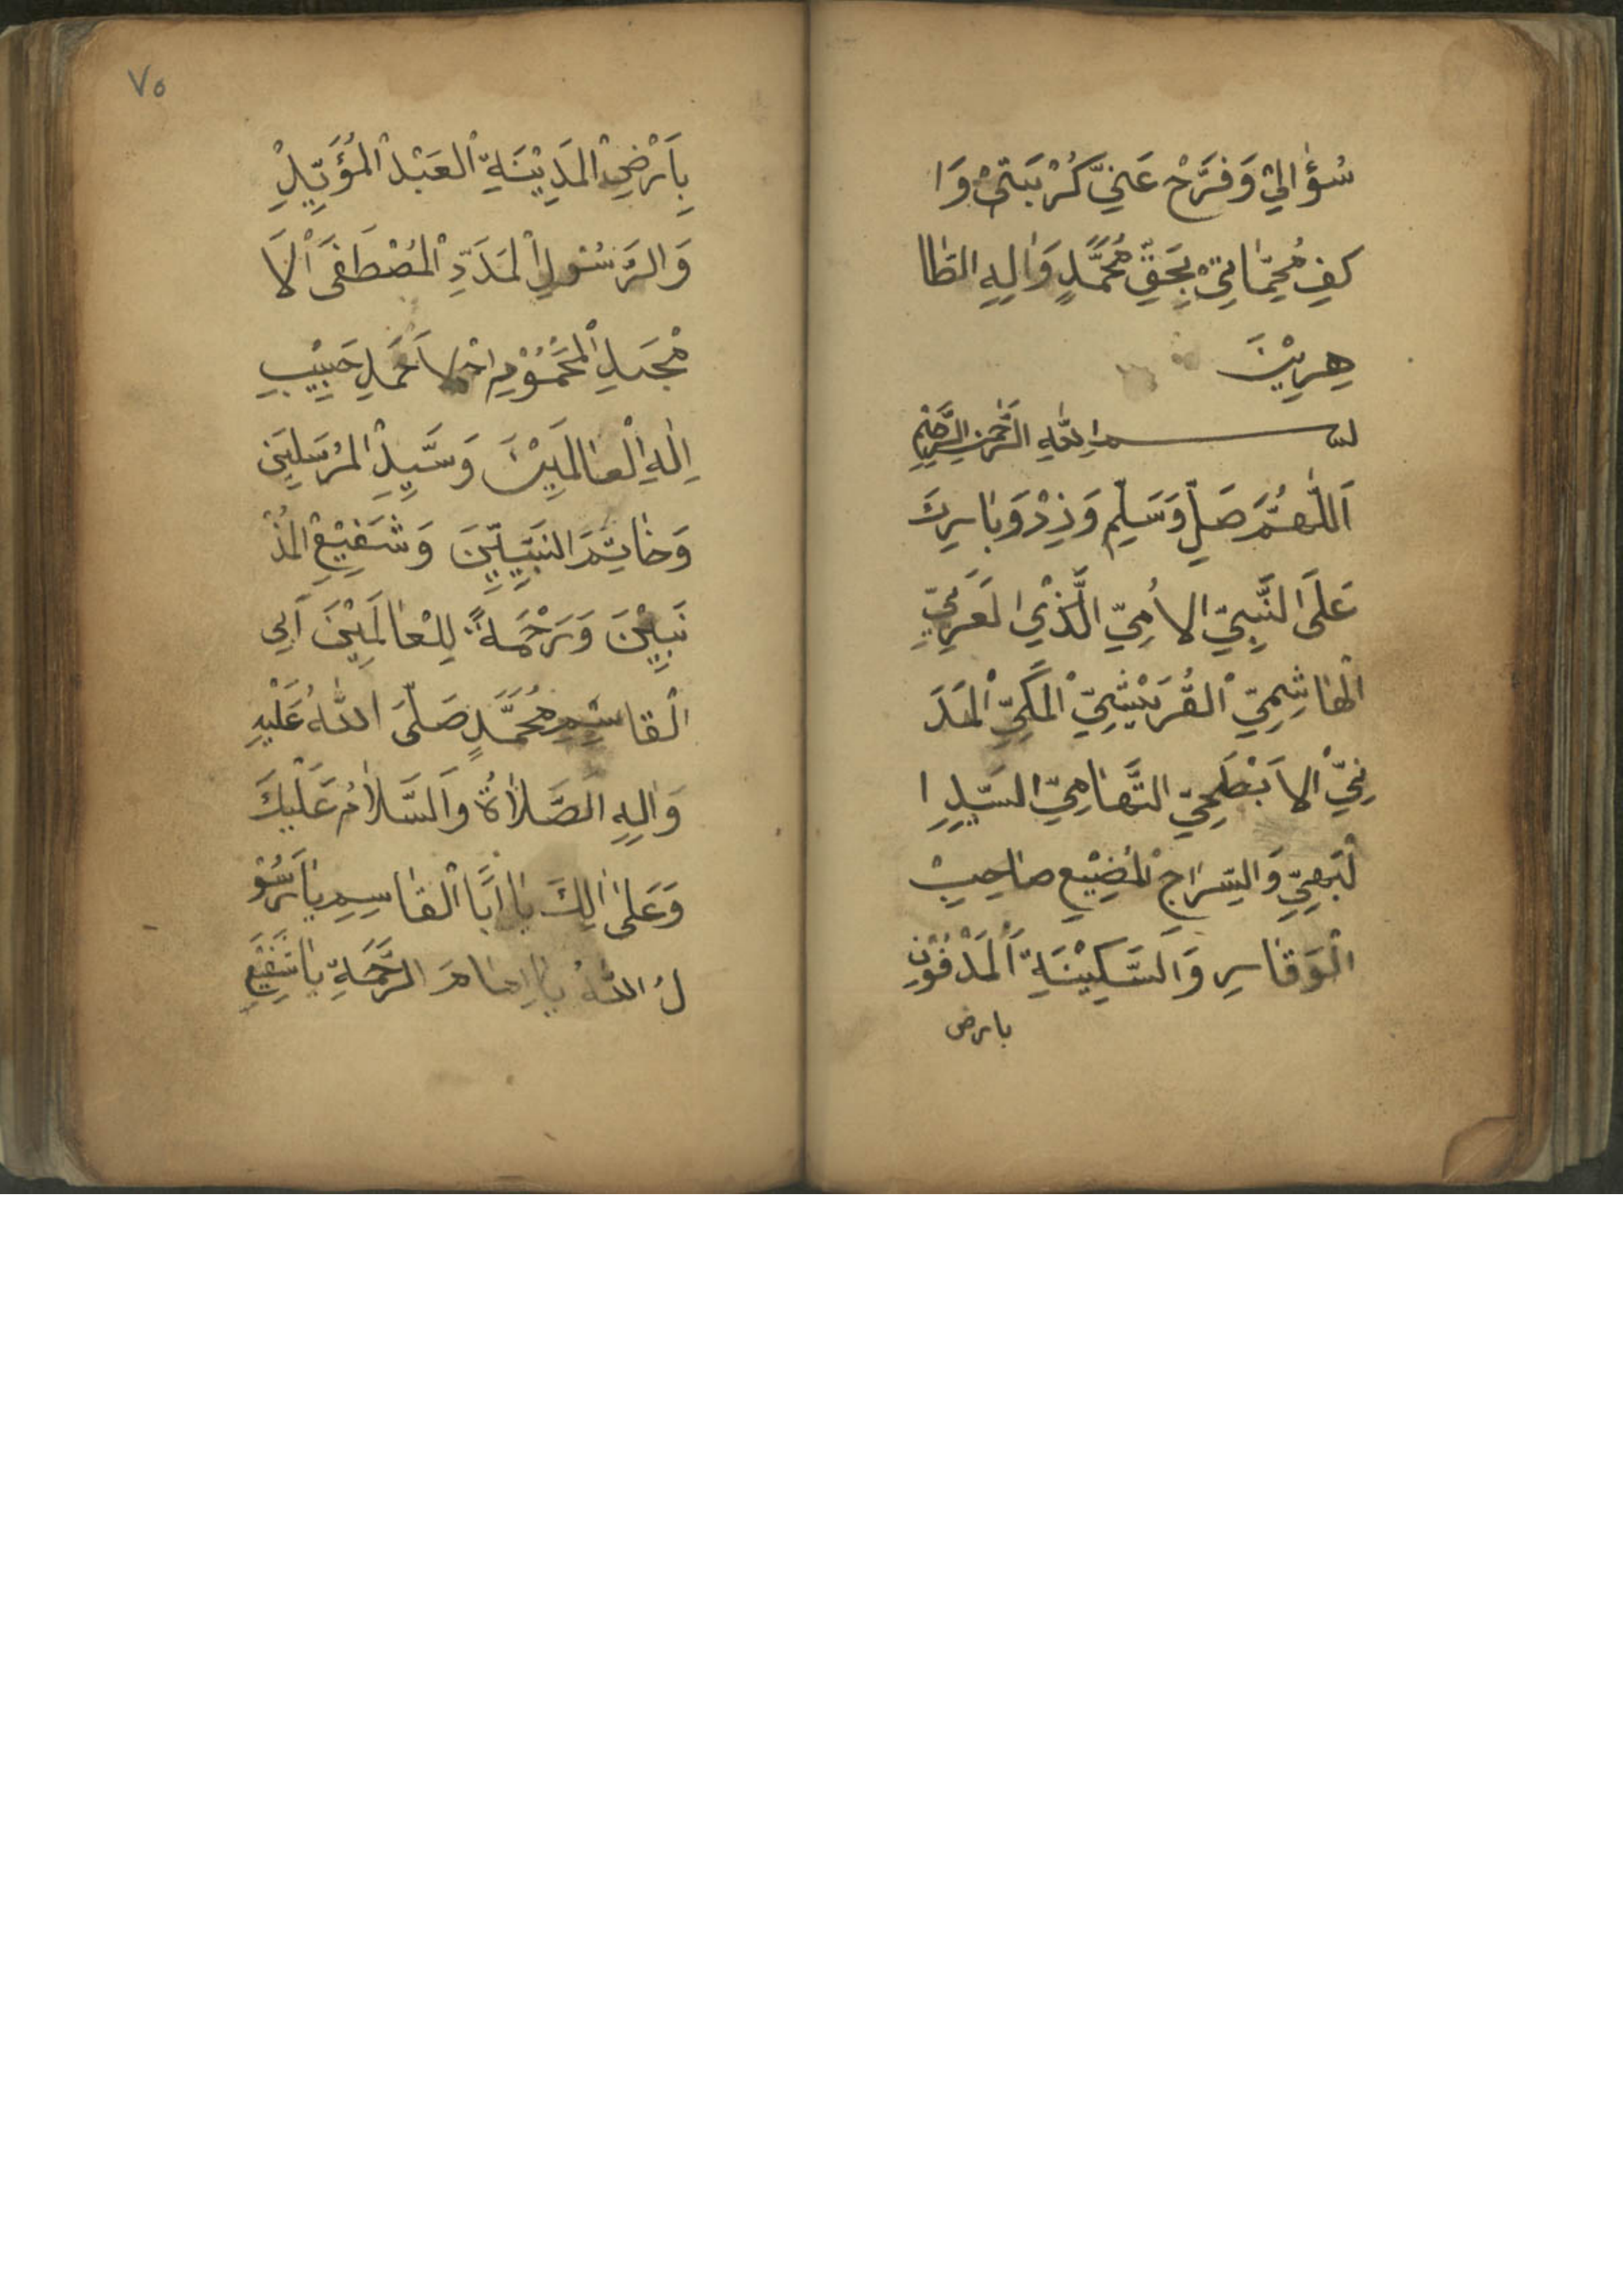 سُؤٰالِيْ وَفَرَّحْ عَنِيّ كُرْبَتِىْ وَا
كفِ مُحِمّٰاتِىْ بِحَقِّ مُحَمَّدٍ وَاٰلِهِ الطّٰا
هِرِيْنَ
بسم اللّٰهِ الرَّحْمٰنِ الرَّحِيْمِ
اَللّٰهُمَّ صَلِّ وَسَلِّم وَزِدْ وَبٰارِكَ
عَلَى النَّبِيّ الاُمِيّ الَّذْيِ لعَرَبِيِّ
الْهٰاشِمِيّ الْقُرَيْشِيّ الْمَكِيّ الْمَدَ
نِيّ الاَبْطَحِيّ التَّهٰامِيّ السَّيِّدِ ا
لْبَهِيِّ وَالسِّرٰاجِ الْمُضِيْعِ صٰاحِبِ
الْوَقٰارِ وَالسَّكِيْنَةِ اَلْمَدْفُوْنِ
بارض
٧٥
بِاَرْضِ الْمَدِيْنَةِ الْعَبْدِ الْمُؤَيِّدِ
وَالرَّسُوْلِ الْمَدَدِّ الْمُصْطَفَى اْلاَ
مْجَدِ الْمَحْمُوْدِ اَحْمَدِ حَبِيْبِ
اِلٰهِ الْعٰالَمِيْنَ وَسَّيِدِ الْمُرْسَلِيَن
وَخٰاتَمَ النَبِيِّيِّنَ وَشَفِيْعِ الْمُذْ
نَبِيْنَ وَرَحْمَةً لِلْعٰالَمِيْنَ اَبِى
الْقٰاسِمِ مُحَمَّدٍ صَلّىَ اللّٰهُ عَلَيْهِ
وَاٰلِهِ الصَّلاٰةُ وَالسَّلاٰمُ عَلَيْكَ
وَعَلىٰ اٰلِكَ يٰا اَبَّا الْقٰاسِمِ يٰا رَسُوْ
لُ اللّٰهُ يٰا اِمٰامَ الرَّحْمَةِ يٰا شَفِيْعِ